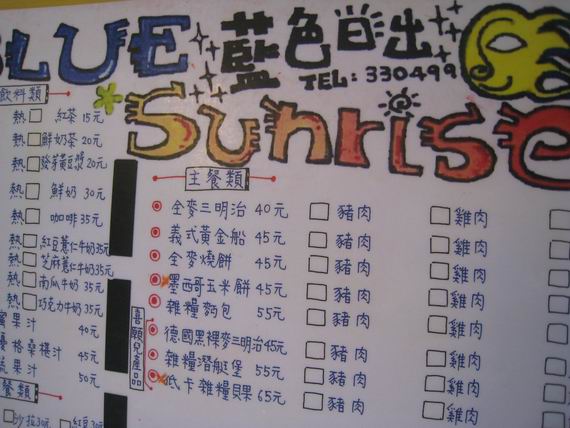 BLUE 藍色日出
TEL: 330499
Sunrise
飲料類
熱 紅茶 15元
熱 鮮奶茶 20元
熱 發芽黃豆漿 20元
熱 鮮奶 30元
熱 咖啡 35元
熱 紅豆薏仁牛奶 35元
熱 芝麻薏仁牛奶 35元
熱 南瓜牛奶 35元
熱 巧克力牛奶 35元
果汁 40元
優格桑椹汁 45元
蔬果汁 50元
餐類
沙拉 30元 紅豆 30元
喜願兒產品
主餐類
全麥三明治 40元 豬肉 雞肉
義式黃金船 45元 豬肉 雞肉
全麥燒餅 45元 豬肉 雞肉
墨西哥玉米餅 45元 豬肉 雞肉
雜糧麵包 55元 豬肉 雞肉
德國黑裸麥三明治 45元 豬肉 雞肉
雜糧潛艇堡 55元 豬肉 雞肉
低卡雜糧貝果 65元 豬肉 雞肉